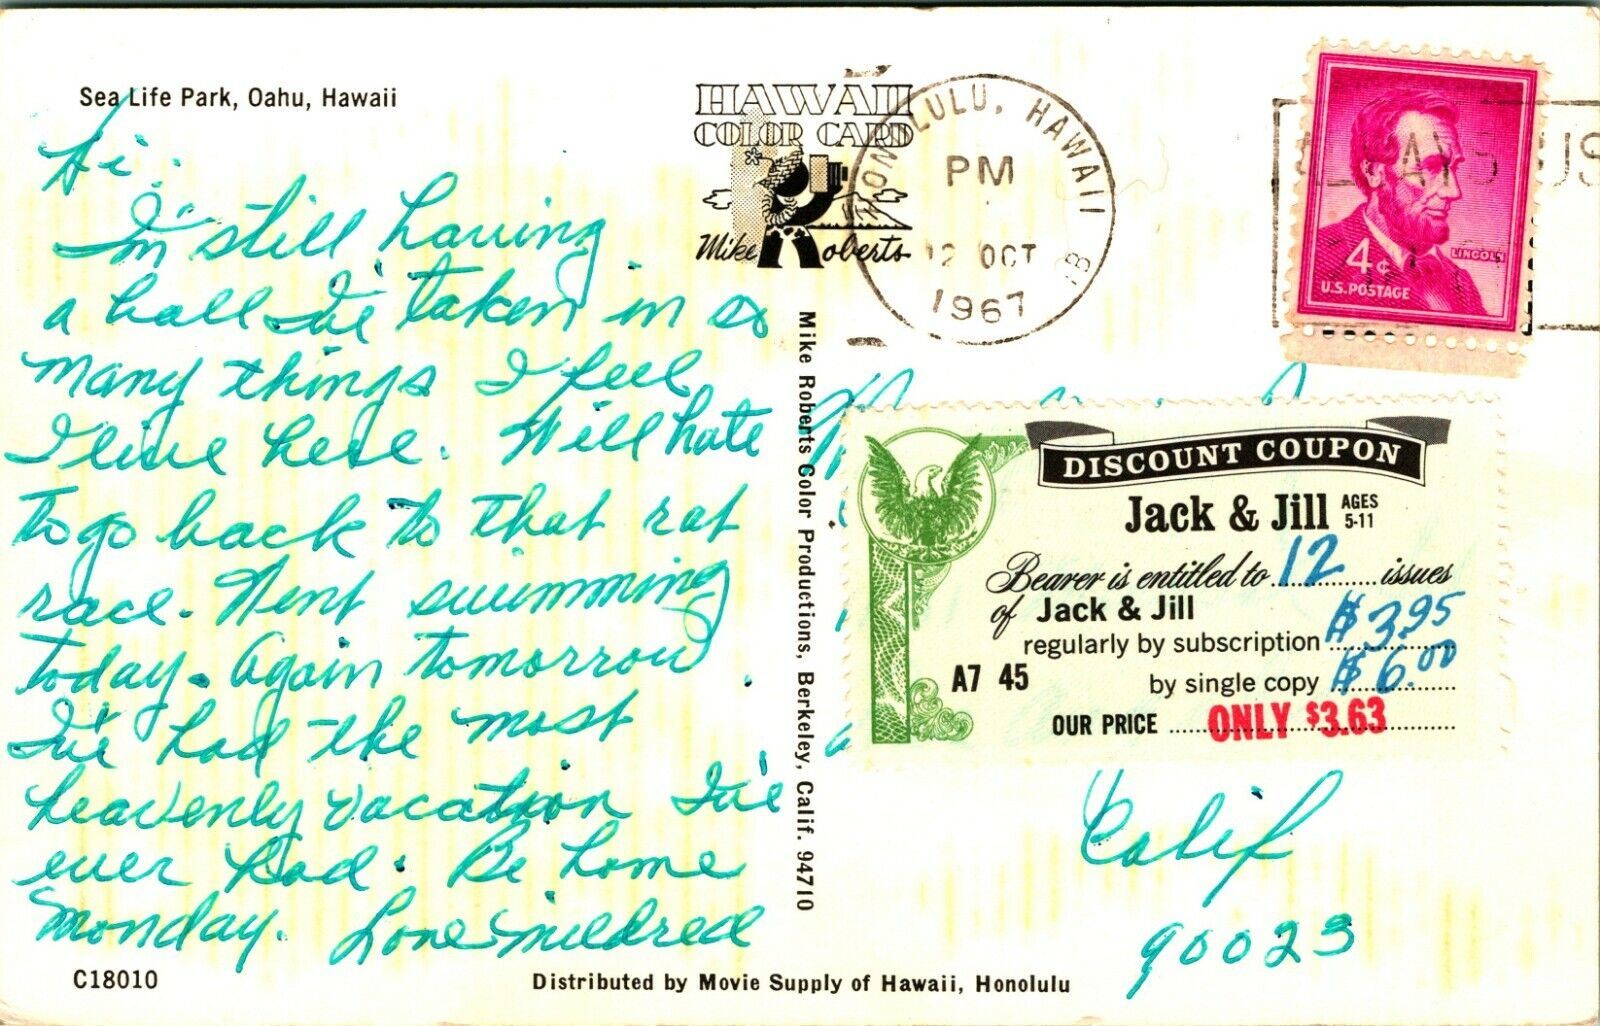 Sea Life Park, Oahu, Hawaii
HAWAII
COLOR CARD
Mike Roberts
HONOLULU, HAWAII
PM
12 OCT
1967
ALWAYS US
4¢
LINCOLN
U.S. POSTAGE
Hi.
I'm still having
a ball I've taken in so
many things I feel
I live here. Will hate
to go back to that rat
race. Went swimming
today. Again tomorrow.
I've had the most
heavenly vacation I've
ever had. Be home
Monday. Love Mildred
Mike Roberts Color Productions, Berkeley, Calif. 94710
DISCOUNT COUPON
Jack & Jill AGES 5-11
Bearer is entitled to 12 issues
of Jack & Jill
regularly by subscription $3.95
A7 45
by single copy $6.00
OUR PRICE ONLY $3.63
Calif
90023
C18010
Distributed by Movie Supply of Hawaii, Honolulu